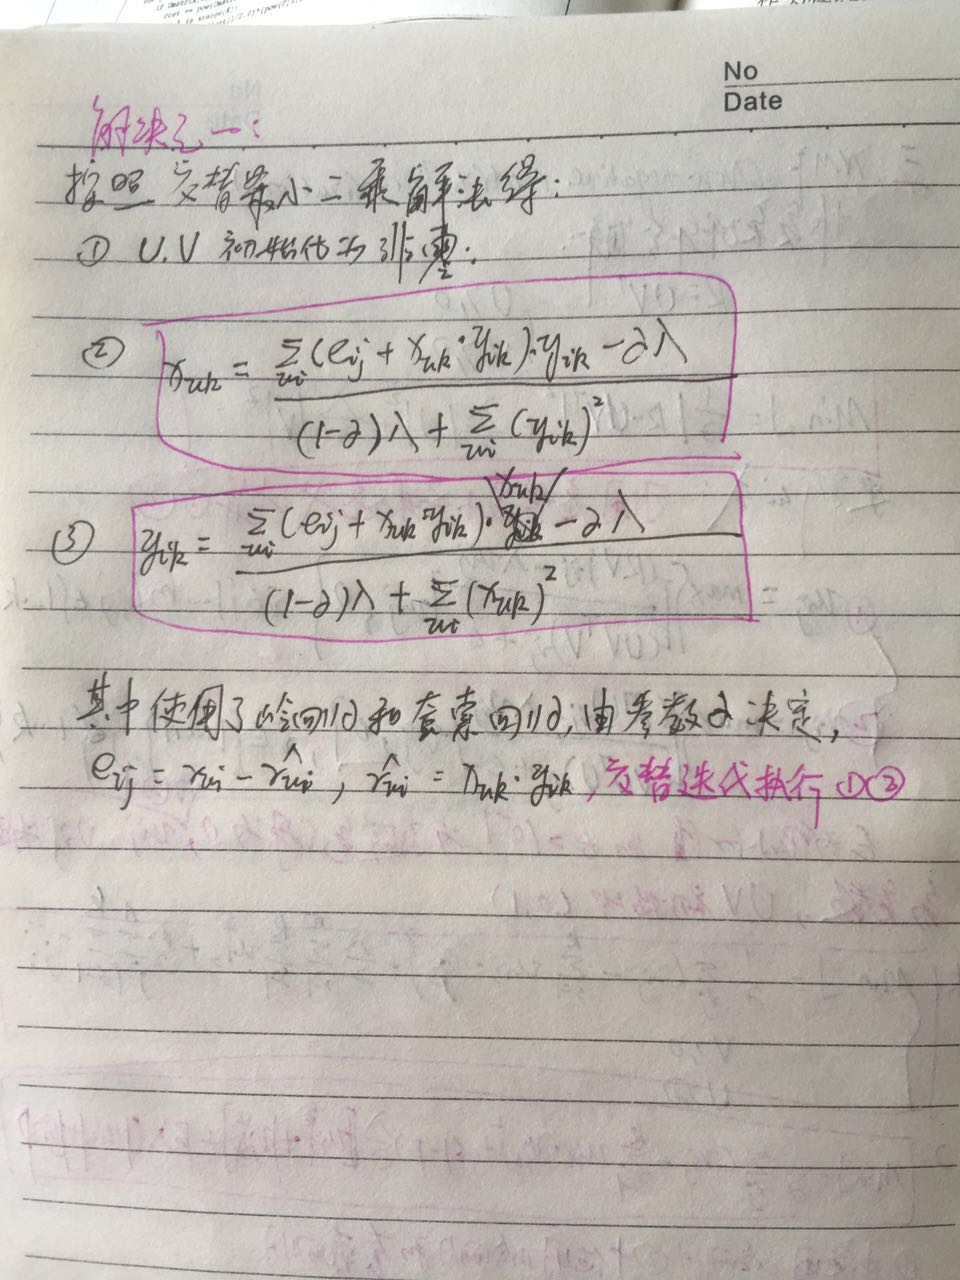 No
Date
解决之一:
按照 交替最小二乘解法得:
① U.V 初始化为非零;
② x_{uk} = \frac{\sum_{ui}(e_{ij} + x_{uk}·y_{ik})·y_{ik} - ∂λ}{(1-∂)λ + \sum_{ui}(y_{ik})^2}
③ y_{ik} = \frac{\sum_{ui}(e_{ij} + x_{uk}·y_{ik})·x_{uk} - ∂λ}{(1-∂)λ + \sum_{ui}(x_{uk})^2}
其中使用了岭回归和套索回归,由参数∂决定,
e_{ij} = r_{ui} - \hat{r}_{ui}, \hat{r}_{ui} = x_{uk}·y_{ik}, 交替迭代执行①②